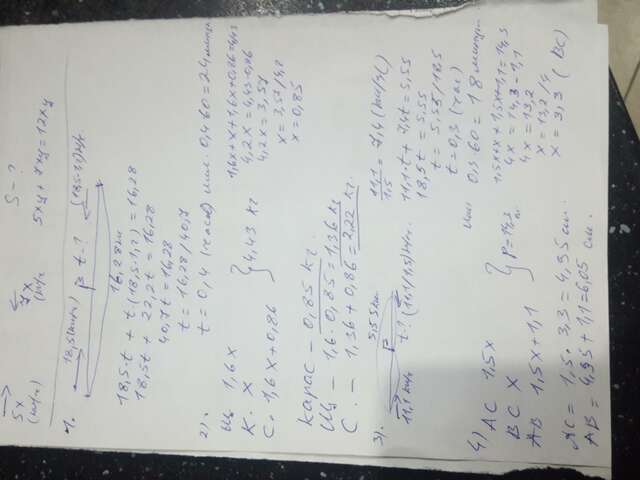 S - ?
5x 7x 5xy + 7xy = 12xy
(км/ч) (км/ч)
1. 18,5 (км/ч) t - ?
16,28 км
18,5t + t(18,5·1,2) = 16,28
18,5t + 22,2t = 16,28
40,7t = 16,28
t = 16,28/40,7
t = 0,4 (часов) или 0,4·60 = 24 минут
2).
Щ 1,6x
К. x } 4,43 кг
С. 1,6x + 0,86
1,6x + x + 1,6x + 0,86 = 4,43
4,2x = 4,43 - 0,86
4,2x = 3,57
x = 3,57/4,2
x = 0,85
карас - 0,85 кг.
Щ - 1,6·0,85 = 1,36 кг
С. - 1,36 + 0,86 = 2,22 кг.
3).
5,55 км
11,1 км/ч t - ? (11,1/1,5) км/ч
11,1/1,5 = 7,4 (км/ч)
11,1t + 7,4t = 5,55
18,5t = 5,55
t = 5,55/18,5
t = 0,3 (час)
или 0,3·60 = 18 минут
4) AC 1,5x
BC x } P = 14,3
AB 1,5x + 1,1
1,5x + x + 1,5x + 1,1 = 14,3
4x = 14,3 - 1,1
4x = 13,2
x = 13,2/4
x = 3,3 (BC)
AC = 1,5·3,3 = 4,95 см.
AB = 4,95 + 1,1 = 6,05 см.